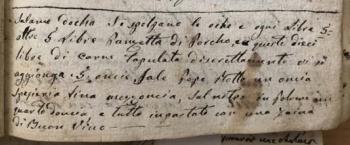 Salame Cocha Si spolgano le oche e ogni libre 5:
otto 5 Libre Panzetta di Porcho, e a queste dieci
libre di Carne Tapulata discrettamente vi si
aggionga 5 oncie Sale Pepe Rotto un oncia
Spezieria fina mezz'oncia, Salnitro in polvere un
quarto d'oncia e tutto inpastato con una zaina
di Buon Vino